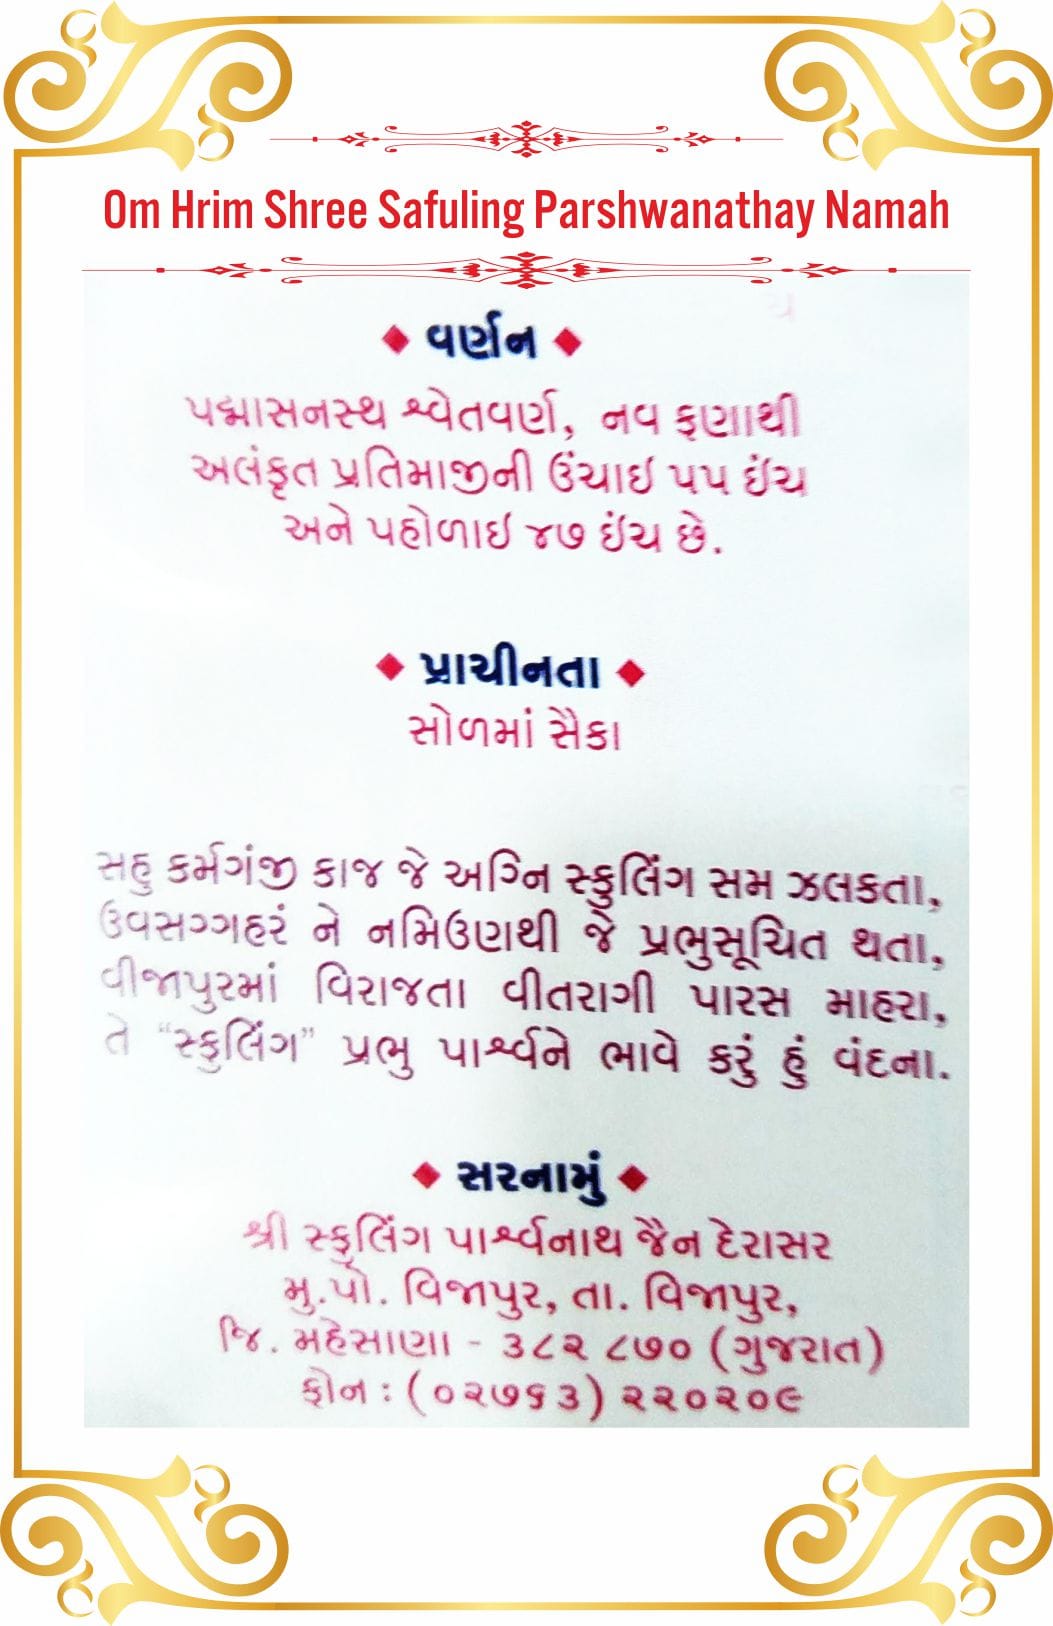 Om Hrim Shree Safuling Parshwanathay Namah
વર્ણન
પદ્માસનસ્થ શ્વેતવર્ણ, નવ ફણાથી
અલંકૃત પ્રતિમાજીની ઉંચાઇ ૫૫ ઈંચ
અને પહોળાઇ ૪૭ ઈંચ છે.
પ્રાચીનતા
સોળમાં સૈકા
સહુ કર્મગંજી કાજ જે અગ્નિ સ્ફુલિંગ સમ ઝલકતા,
ઉવસગ્ગહરં ને નમિઉણથી જે પ્રભુસૂચિત થતા,
વીજાપુરમાં વિરાજતા વીતરાગી પારસ માહરા,
તે “સ્ફુલિંગ” પ્રભુ પાર્શ્વને ભાવે કરું હું વંદના.
સરનામું
શ્રી સ્ફુલિંગ પાર્શ્વનાથ જૈન દેરાસર
મુ.પો. વિજાપુર, તા. વિજાપુર,
જિ. મહેસાણા - ૩૮૨ ૮૭૦ (ગુજરાત)
ફોન : (૦૨૭૬૩) ૨૨૦૨૦૯